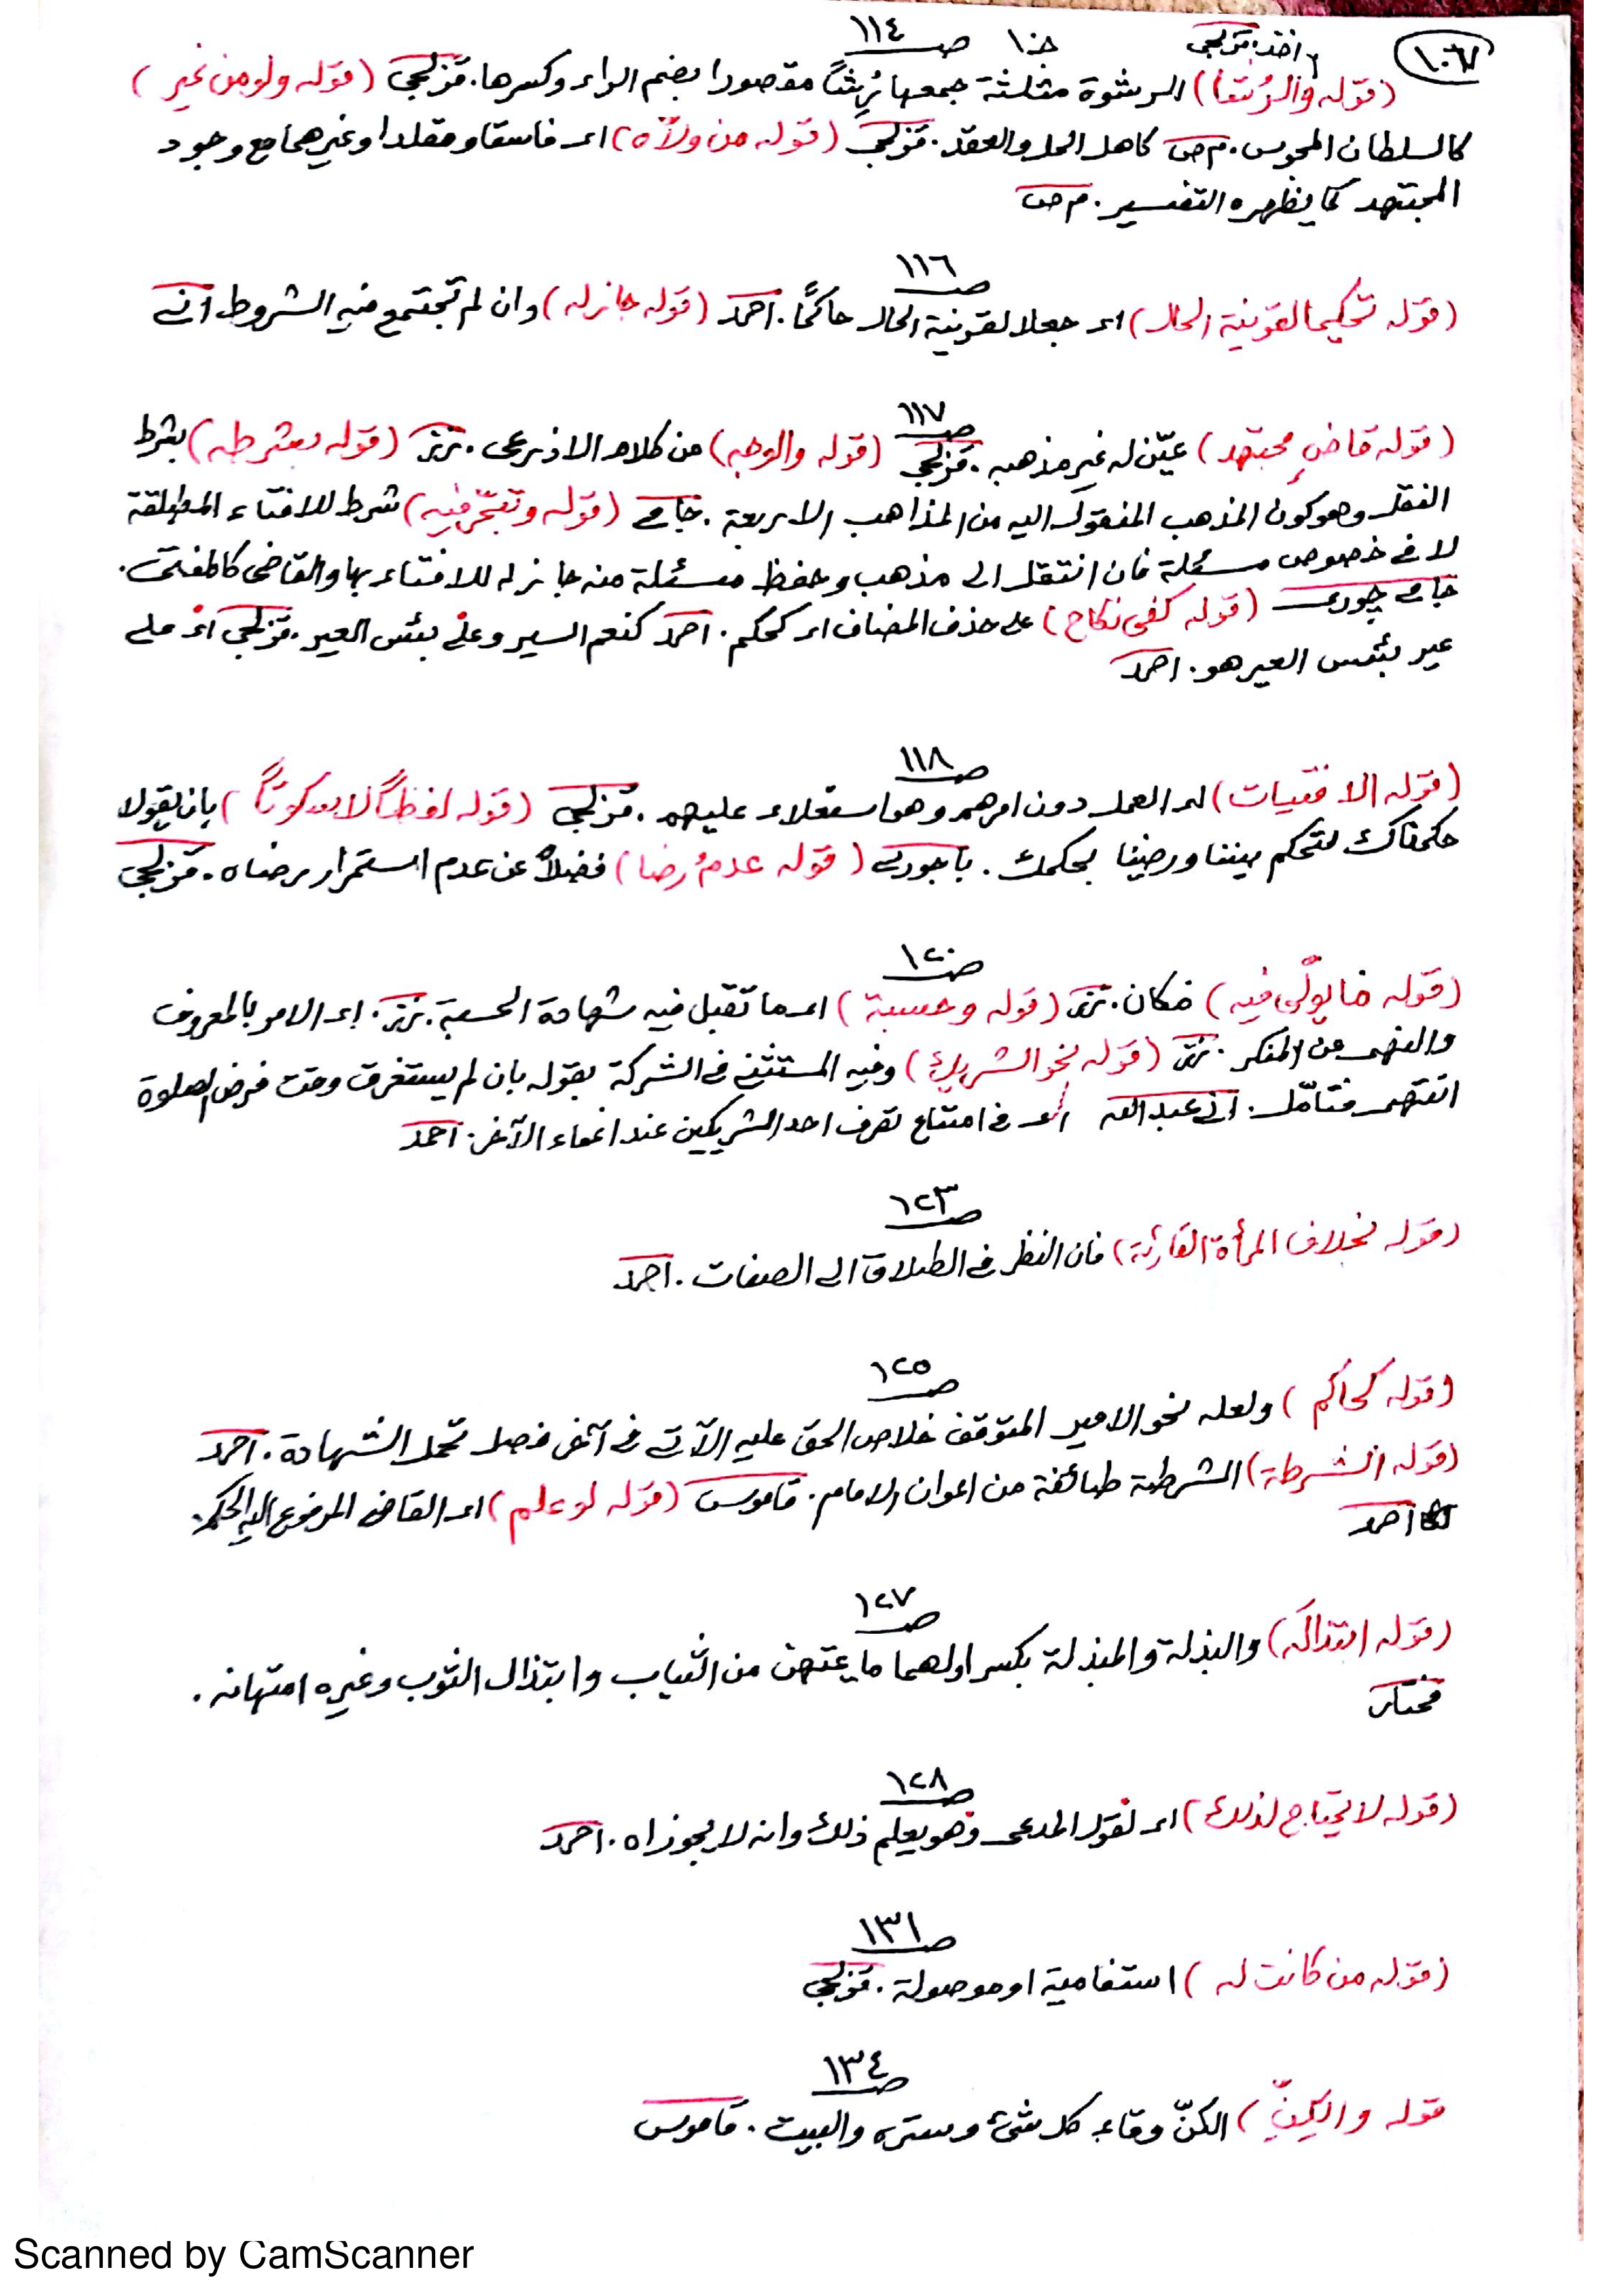 ١٠٦٧
ص ١١٤ ج ١٠
(قوله والرُشَا) الرشوة مثلثة جمعها رُِشًا مقصورا بضم الراء وكسرها. قزلجى (قوله ولو من غير)
كالسلطان المحبوس. م ص كاهل الحل والعقد. قزلجى (قوله من ولّاه) اى فاسقا ومقلدا وغيرهما مع وجود
المجتهد كما يظهره التفسير. م ص
ص ١١٦
(قوله تحكيما لقرينة الحال) اى جعلا لقرينة الحال حاكمًا. احمد (قوله جاز له) وان لم تجتمع فيه الشروط
ص ١١٧
(قوله قاضٍ مجتهد) عيّن له غير مذهبه. قزلجى (قوله والوجه) من كلام الاذرعى. (قوله بشرطه) بشرط
النقل وهو كون المذهب المنقول اليه من المذاهب الاربعة. (قوله وتبحّر فيه) شرط للافتاء المطلقة
لا فى خصوص مسئلة فان انتقل الى مذهب وحفظ مسئلة منه جاز له للافتاء بها والقاضى كالمفتى.
(قوله كفى نكاح) على حذف المضاف اى كحكم. احمد كنعم السير وعلى بئس العير. قزلجى اى على
عير بئس العير هو. احمد
ص ١١٨
(قوله الافتيات) اى العمل دون امرهم وهو استعلاء عليهم. قزلجى (قوله لفظًا لا سكوتًا) بان يقولا
حكمناك لتحكم بيننا ورضينا بحكمك. باجورى (قوله عدمُ رضا) فضلًا عن عدم استمرار رضاه. قزلجى
ص ١٢٠
(قوله فما يولّى فيه) فكان. (قوله وحسبة) اى ما تقبل فيه شهادة الحسبة. اى الامر بالمعروف
والنهى عن المنكر. (قوله نحو الشريك) وفيه المستثنى فى الشركة بقوله بان لم يستغرق وقت فرض الصلوة
انتهى فتامّل. عبد الله اى فى امتناع تصرف احد الشريكين عند اغماء الآخر. احمد
ص ١٢٣
(قوله بخلاف المرأة القارئة) فان النظر فى الطلاق الى الصفات. احمد
ص ١٢٥
(قوله كحاكم) ولعله نحو الامير المتوقف خلاص الحق عليه الآتى فى آخر فصل تحمل الشهادة. احمد
(قوله الشرطة) الشرطة طائفة من اعوان الامام. قاموس (قوله لو علم) اى القاضى المرفوع اليه الحكم.
احمد
ص ١٢٧
(قوله ابتذالَه) والبذلة والمبذلة بكسر اولهما ما يمتهن من الثياب وابتذال الثوب وغيره امتهانه.
مختار
ص ١٢٨
(قوله لا يحتاج لذلك) اى لقول المدعى وهو يعلم ذلك وانه لا يجوز اه. احمد
ص ١٣١
(قوله من كانت له) استفامية او موصولة. قزلجى
ص ١٣٤
قوله والكِنِّ) الكنّ وقاء كل شئ وستره والبيت. قاموس
Scanned by CamScanner